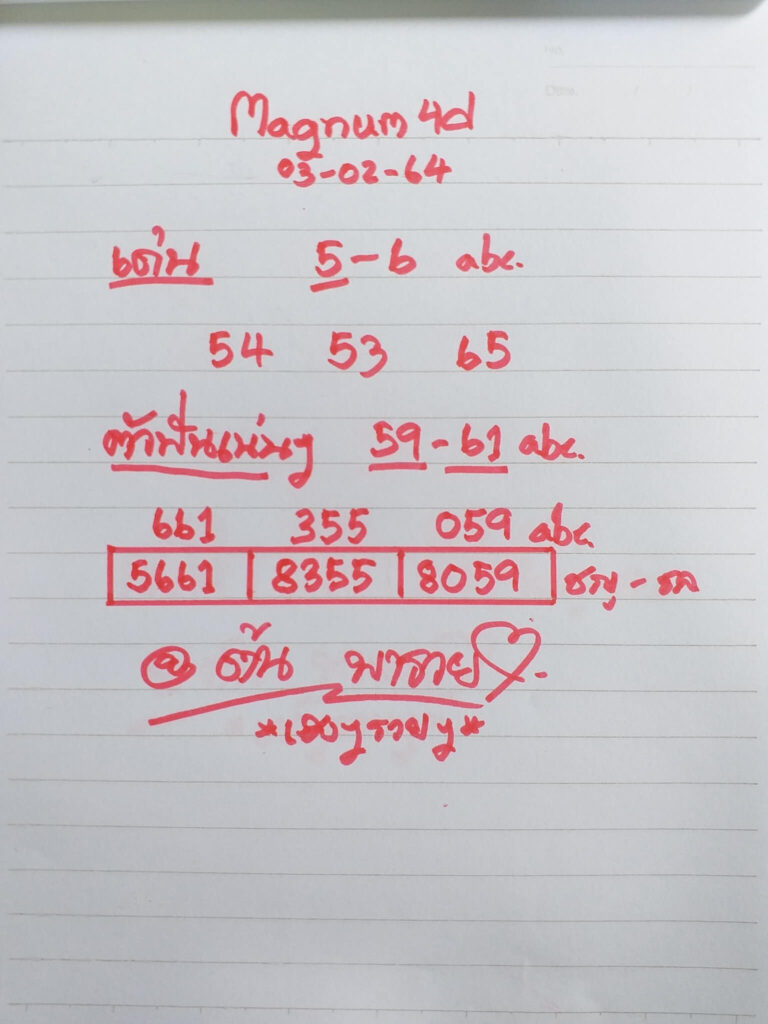 No.
Date. / /
Magnum 4d
03-02-64
เด่น 5-6 abc.
54 53 65
ตัวฟันเน่นๆ 59-61 abc.
661 355 059 abc.
5661 8355 8059
@ ต้น พารวย
*เฮงๆรวยๆ*